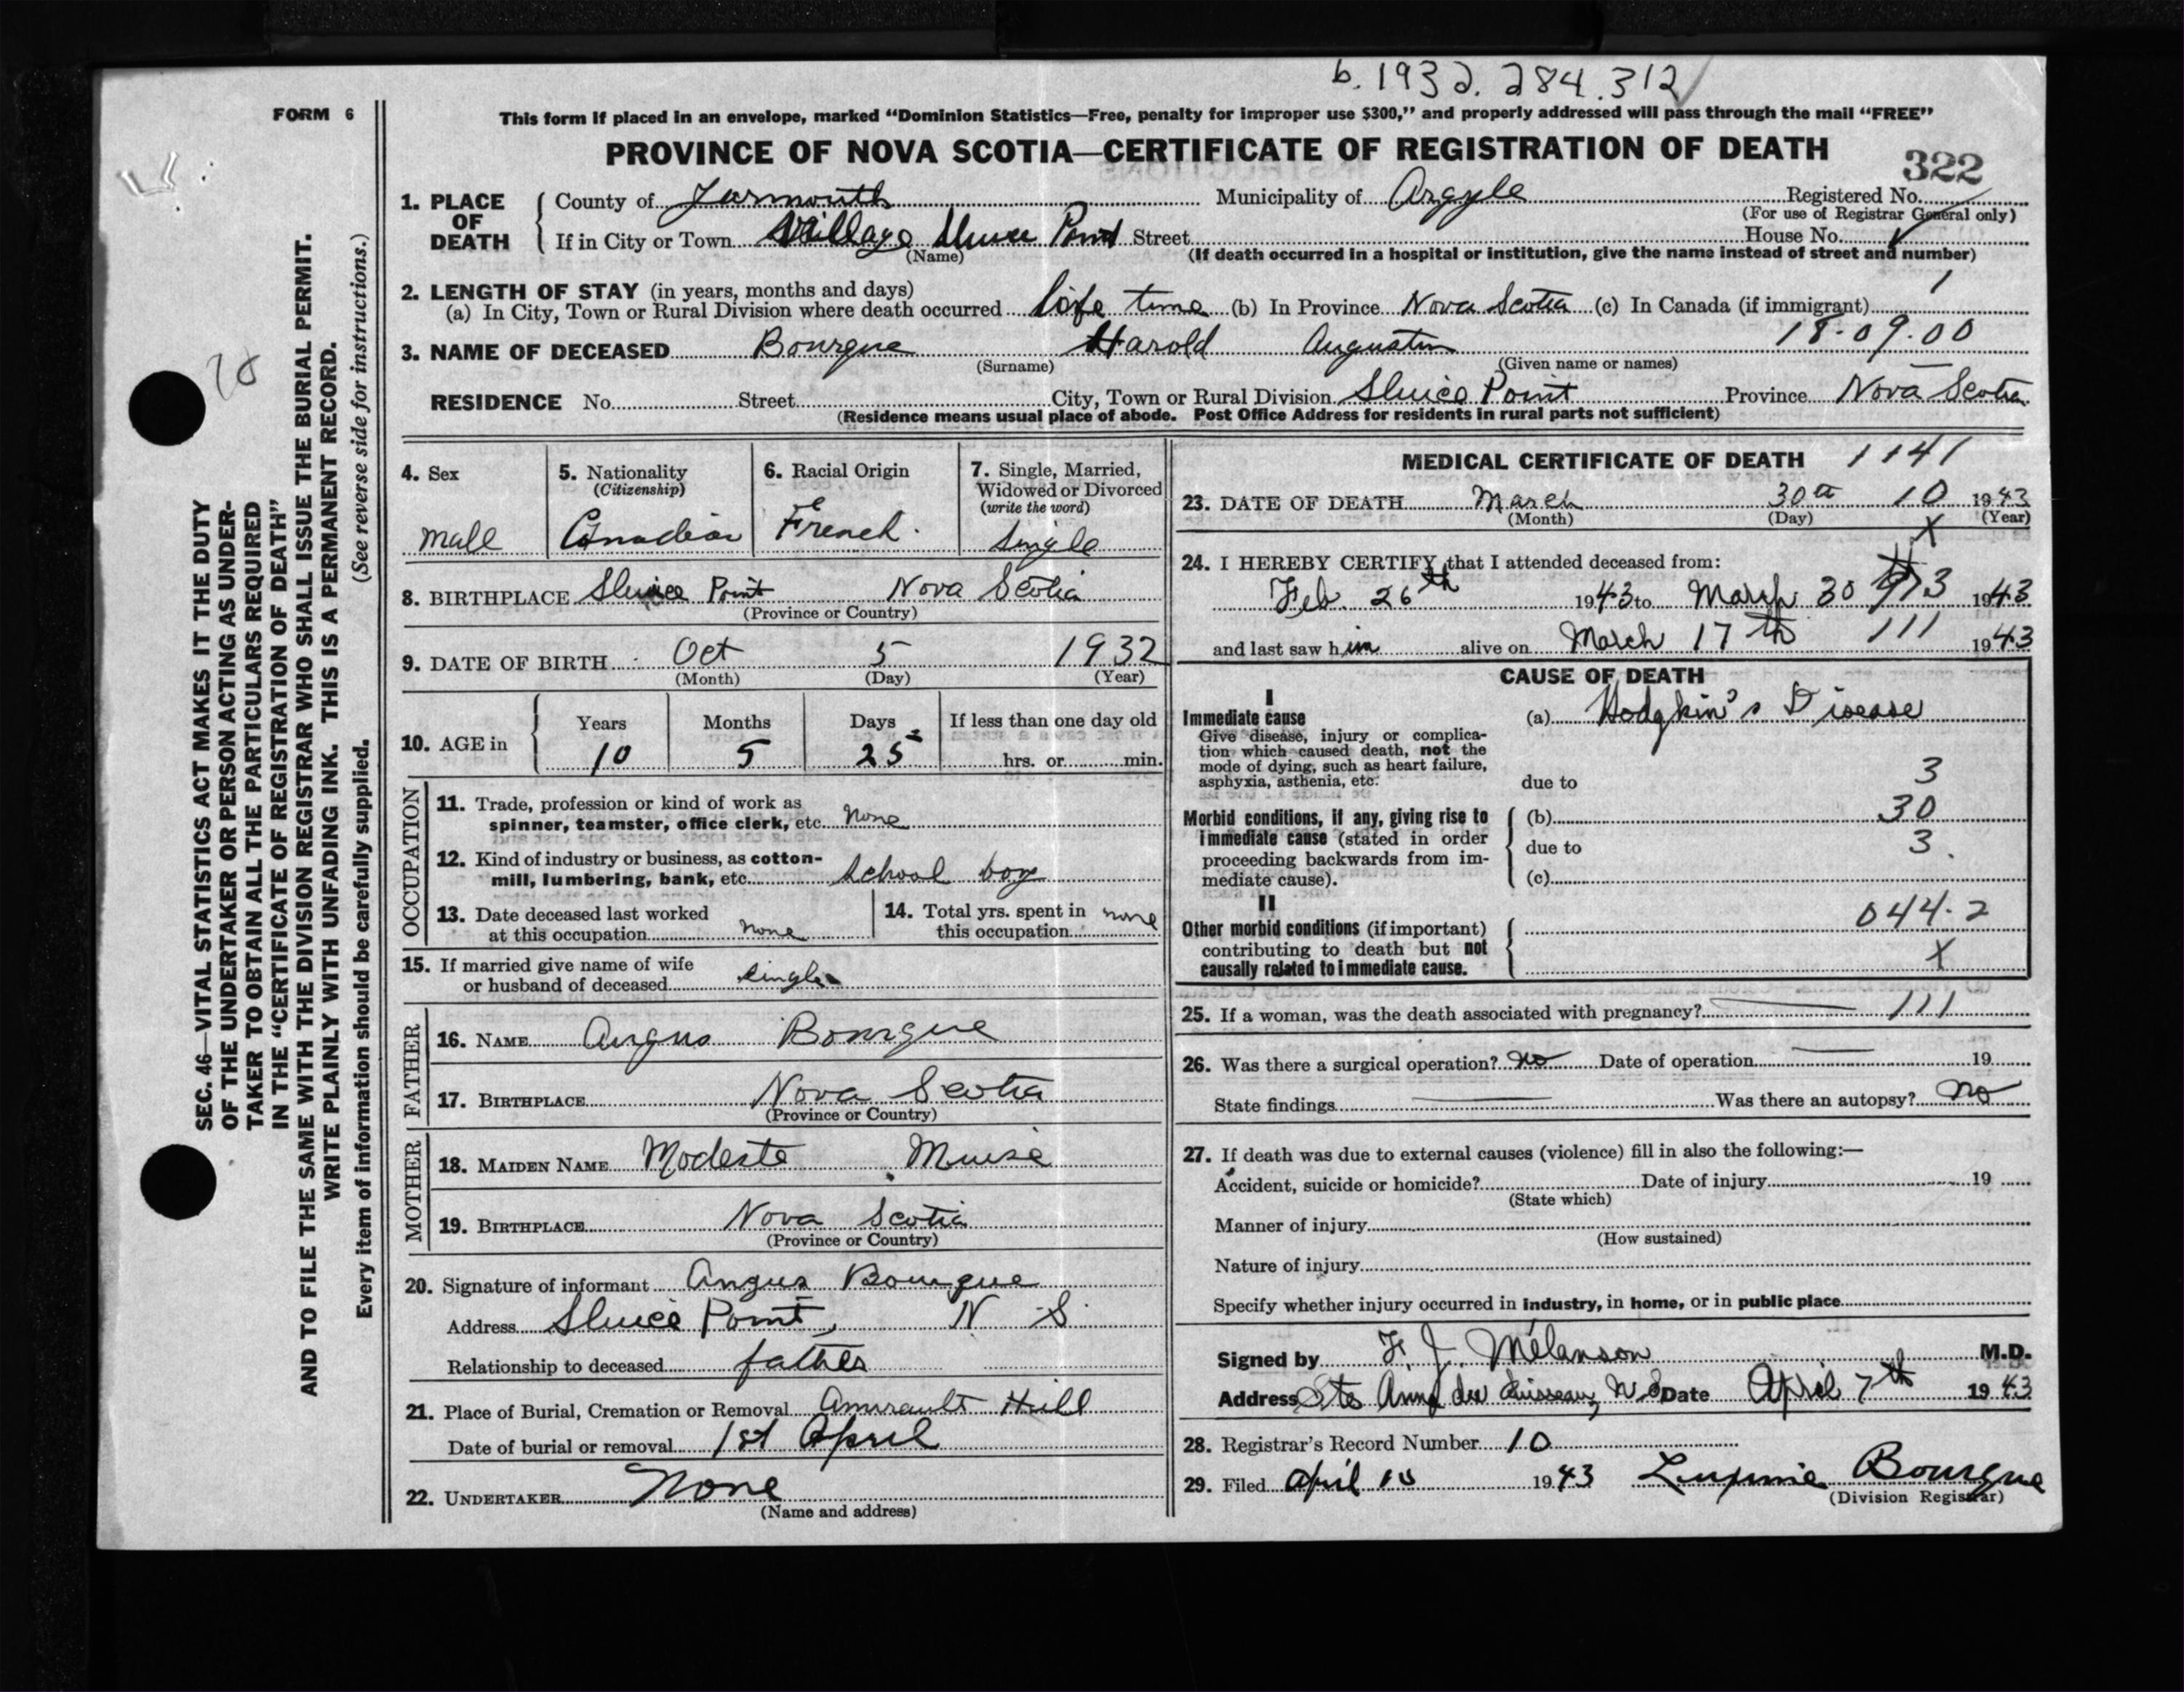 b. 1932. 284. 312
FORM 6
This form if placed in an envelope, marked "Dominion Statistics—Free, penalty for improper use $300," and properly addressed will pass through the mail "FREE"
PROVINCE OF NOVA SCOTIA—CERTIFICATE OF REGISTRATION OF DEATH
322
1. PLACE OF DEATH
County of Yarmouth Municipality of Argyle Registered No.
(For use of Registrar General only)
If in City or Town Village Sluice Point Street House No.
(Name) (If death occurred in a hospital or institution, give the name instead of street and number)
2. LENGTH OF STAY (in years, months and days)
(a) In City, Town or Rural Division where death occurred life time (b) In Province Nova Scotia (c) In Canada (if immigrant) 1
18-09-00
3. NAME OF DECEASED Bourque Harold Augustin
(Surname) (Given name or names)
RESIDENCE No. Street City, Town or Rural Division Sluice Point Province Nova Scotia
(Residence means usual place of abode. Post Office Address for residents in rural parts not sufficient)
4. Sex
male
5. Nationality
(Citizenship)
Canadian
6. Racial Origin
French
7. Single, Married,
Widowed or Divorced
(write the word)
Single
8. BIRTHPLACE Sluice Point Nova Scotia
(Province or Country)
9. DATE OF BIRTH Oct 5 1932
(Month) (Day) (Year)
10. AGE in
Years Months Days If less than one day old
10 5 25 hrs. or min.
OCCUPATION
11. Trade, profession or kind of work as
spinner, teamster, office clerk, etc. None
12. Kind of industry or business, as cotton-
mill, lumbering, bank, etc. School boy
13. Date deceased last worked
at this occupation none
14. Total yrs. spent in
this occupation none
15. If married give name of wife
or husband of deceased single
FATHER
16. NAME Angus Bourque
17. BIRTHPLACE Nova Scotia
(Province or Country)
MOTHER
18. MAIDEN NAME Modeste Muise
19. BIRTHPLACE Nova Scotia
(Province or Country)
20. Signature of informant Angus Bourque
Address Sluice Point, N S
Relationship to deceased father
21. Place of Burial, Cremation or Removal Amirault Hill
Date of burial or removal 1st April
22. UNDERTAKER None
(Name and address)
MEDICAL CERTIFICATE OF DEATH 1141
23. DATE OF DEATH March 30th 10 1943
(Month) (Day) (Year)
X
24. I HEREBY CERTIFY that I attended deceased from:
Feb. 26th 1943 to March 30 1943
and last saw him alive on March 17th 111 1943
CAUSE OF DEATH
I
Immediate cause
Give disease, injury or complica-
tion which caused death, not the
mode of dying, such as heart failure,
asphyxia, asthenia, etc.
(a) Hodgkin's Disease
due to 3
Morbid conditions, if any, giving rise to
immediate cause (stated in order
proceeding backwards from im-
mediate cause).
(b) 30
due to 3.
(c)
II
Other morbid conditions (if important)
contributing to death but not
causally related to immediate cause.
044.2
X
25. If a woman, was the death associated with pregnancy? 111
26. Was there a surgical operation? no Date of operation 19
State findings Was there an autopsy? no
27. If death was due to external causes (violence) fill in also the following:—
Accident, suicide or homicide? Date of injury 19
(State which)
Manner of injury
(How sustained)
Nature of injury
Specify whether injury occurred in industry, in home, or in public place
Signed by F. J. Mélanson M.D.
Address Ste Anne du Ruisseau, N S Date April 7th 1943
28. Registrar's Record Number 10
29. Filed April 10 1943 Bourque
(Division Registrar)
SEC. 46—VITAL STATISTICS ACT MAKES IT THE DUTY
OF THE UNDERTAKER OR PERSON ACTING AS UNDER-
TAKER TO OBTAIN ALL THE PARTICULARS REQUIRED
IN THE "CERTIFICATE OF REGISTRATION OF DEATH"
AND TO FILE THE SAME WITH THE DIVISION REGISTRAR WHO SHALL ISSUE THE BURIAL PERMIT.
WRITE PLAINLY WITH UNFADING INK. THIS IS A PERMANENT RECORD.
Every item of information should be carefully supplied. (See reverse side for instructions.)